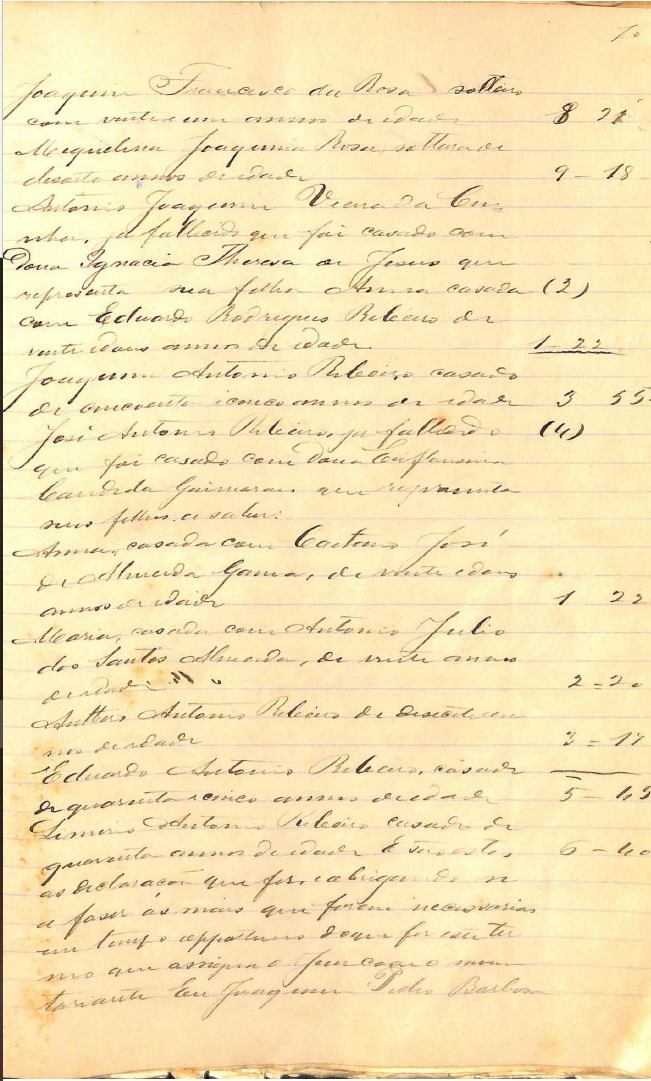 Joaquim Francisco da Rosa solteiro
com vinte e um annos de idade 8 21
Miquelina Joaquina Rosa, solteira de
desoito annos de idade 9 - 18
Antonio Joaquim Vieira da Cu=
nha, ja fallecido que foi casado com
Dona Ignacia Theresa de Jesus que
representa sua filha Anna casada (2)
com Eduardo Rodrigues Ribeiro de
vinte e dous annos de idade. 1 - 22
Joaquim Antonio Ribeiro casado
de cincoenta e cinco annos de idade 3 55
José Antonio Ribeiro, ja fallecido (4)
que foi casado com Dona
Candida Guimarães que representa
seus filhos a saber:
Anna, casada com Caetano José
de Almeida Gama, de vinte e dous
annos de idade 1 22
Maria, casada com Antonio Julio
dos Santos Almeida, de vinte annos
de idade 2 = 20
Antonio Ribeiro de desesete an
nos de idade 3 = 17
Eduardo Antonio Ribeiro, casado
de quarenta e cinco annos de idade 5 - 45
Antonio Ribeiro casado de
quarenta annos de idade E são estas 6 - 40
as declaração que fez, e obrigando se
a faser ás mais que forem necessarias
em tempo opportuno do que fiz este ter
mo que assigna o Juiz com o inven
tariante Eu Joaquim Pedro Barbosa